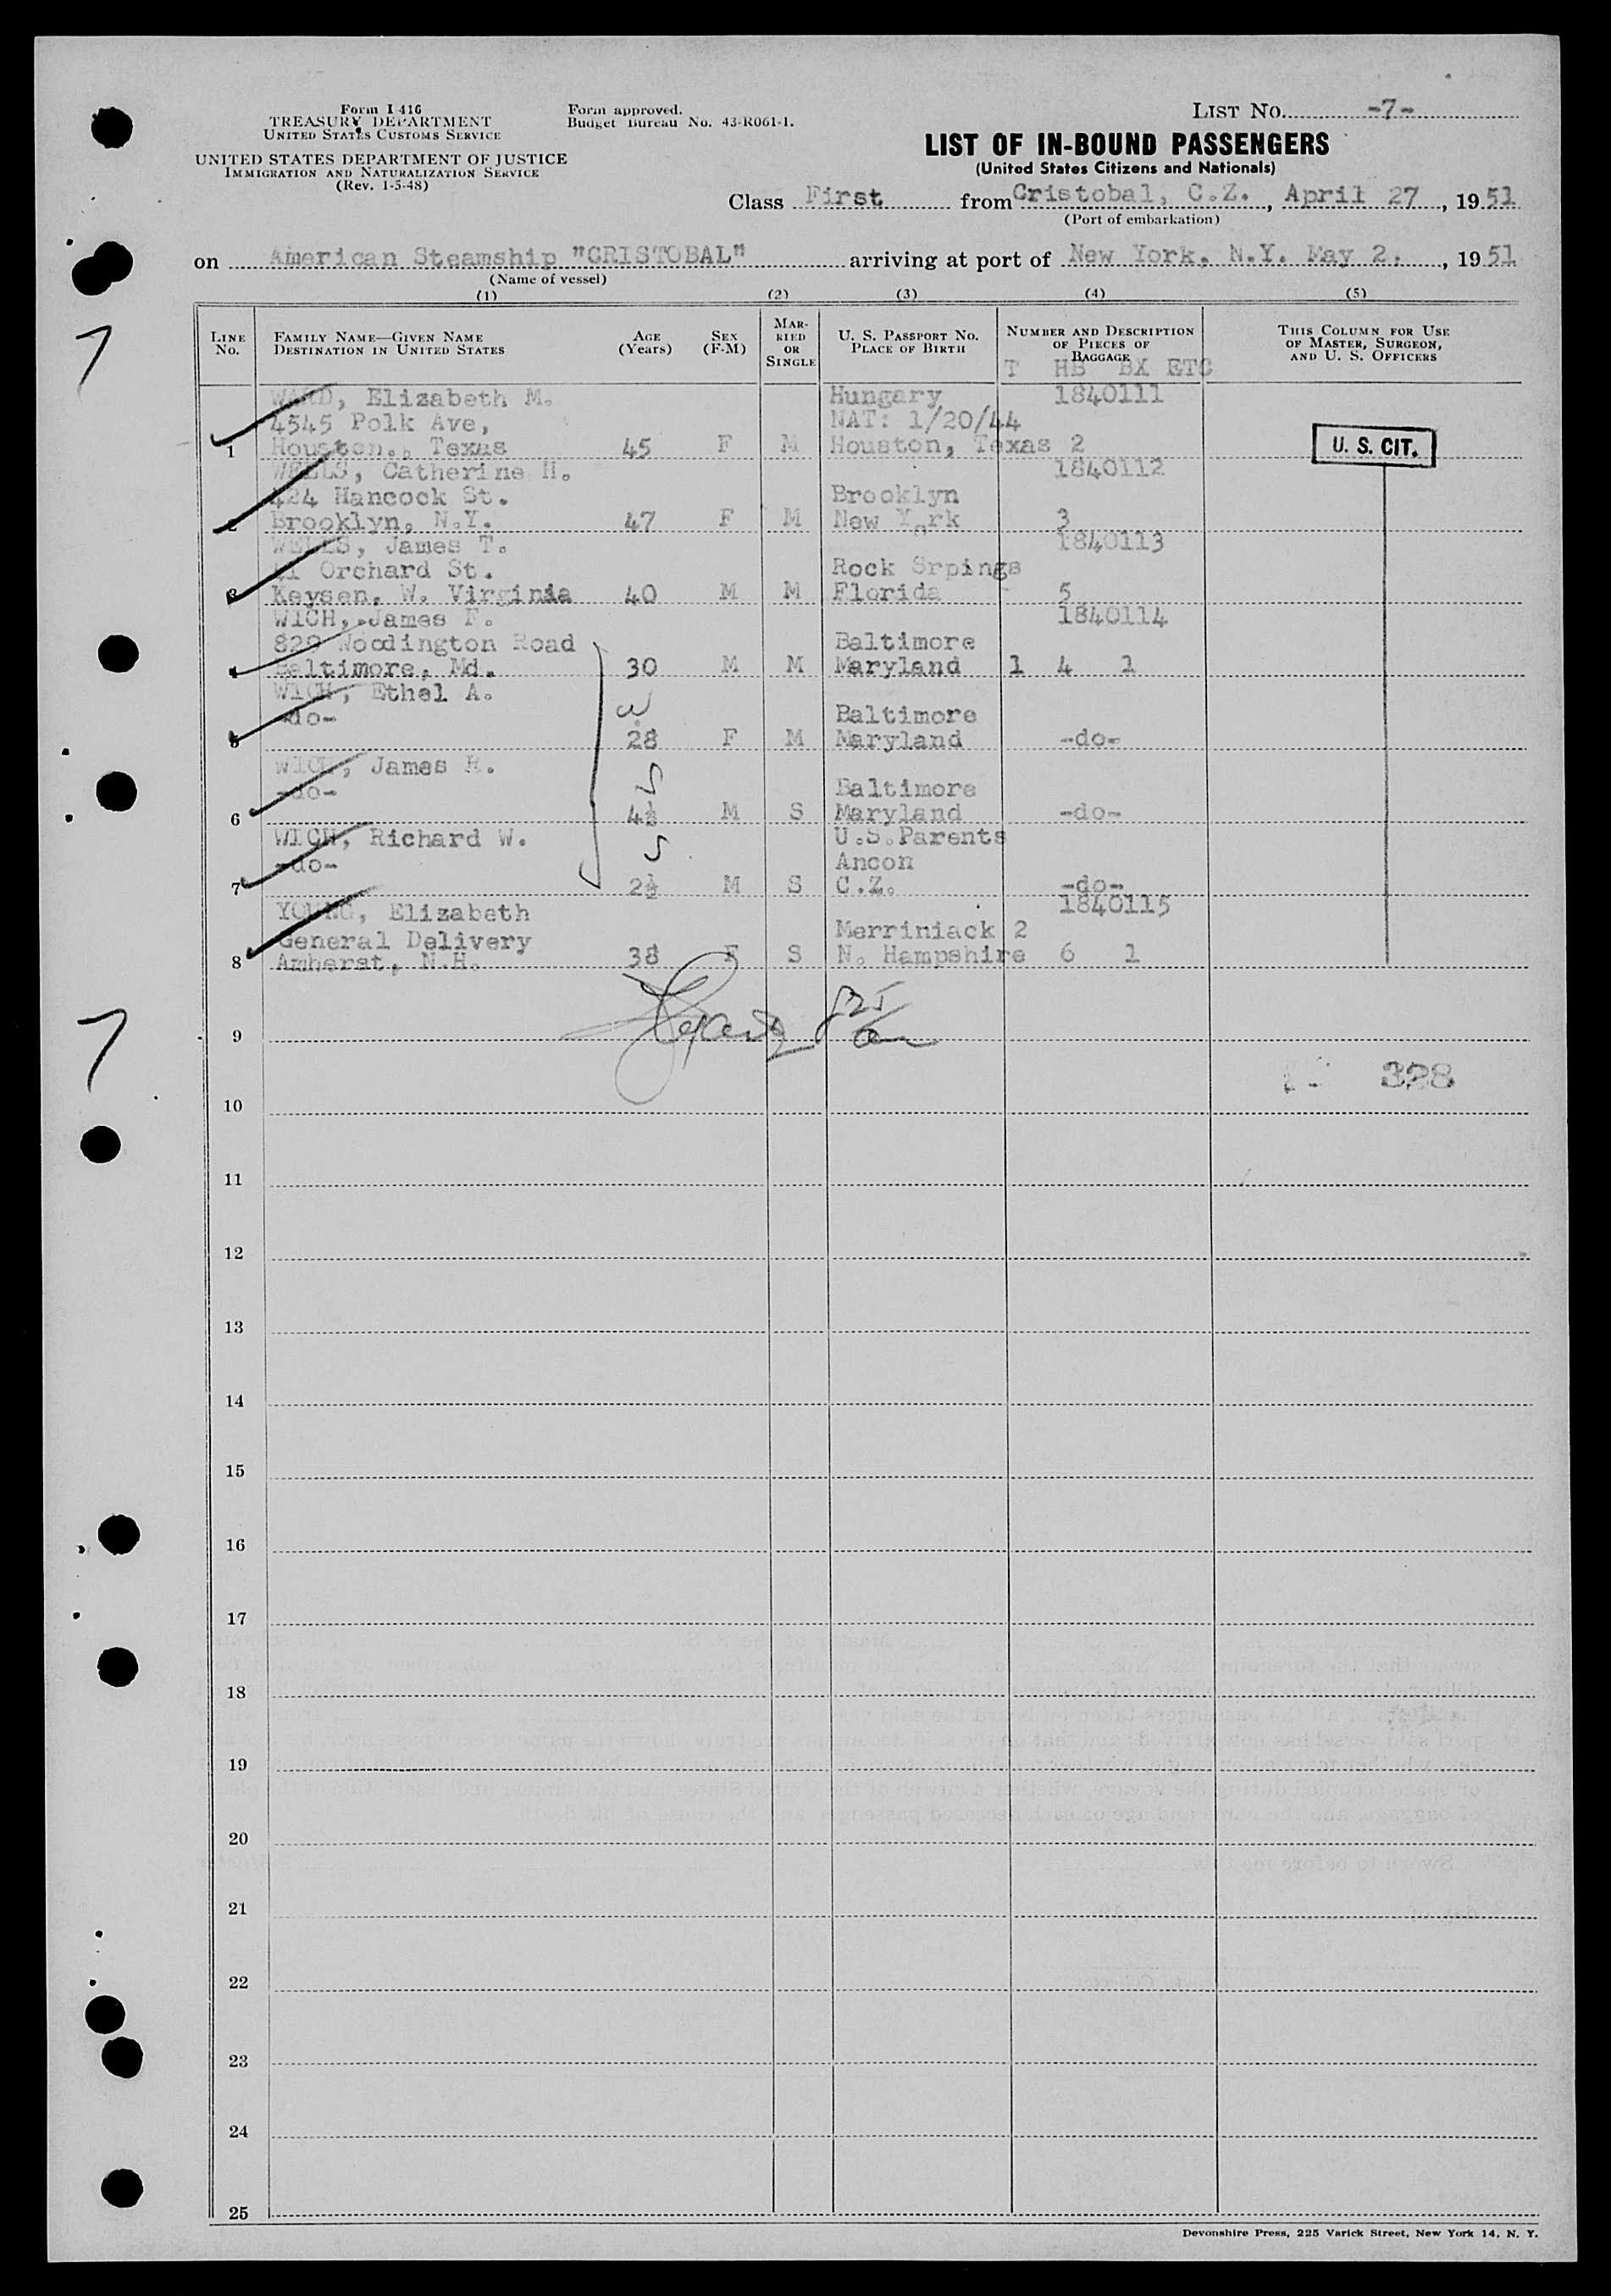 Form I 416
TREASURY DEPARTMENT
UNITED STATES CUSTOMS SERVICE
UNITED STATES DEPARTMENT OF JUSTICE
IMMIGRATION AND NATURALIZATION SERVICE
(Rev. 1-5-48)
Form approved.
Budget Bureau No. 43-R061-1.
LIST No. -7-
LIST OF IN-BOUND PASSENGERS
(United States Citizens and Nationals)
Class First from Cristobal, C.Z., April 27, 1951
(Port of embarkation)
on American Steamship "CRISTOBAL" arriving at port of New York, N.Y. May 2, 1951
(Name of vessel)
(1) (2) (3) (4) (5)
LINE No. FAMILY NAME—GIVEN NAME DESTINATION IN UNITED STATES AGE (Years) SEX (F-M) MARRIED OR SINGLE U. S. PASSPORT No. PLACE OF BIRTH NUMBER AND DESCRIPTION OF PIECES OF BAGGAGE THIS COLUMN FOR USE OF MASTER, SURGEON, AND U. S. OFFICERS
T HB BX ETC
WARD, Elizabeth M. Hungary 1840111
4545 Polk Ave, NAT: 1/20/44
1 Houston., Texas 45 F M Houston, Texas 2 U. S. CIT.
WELLS, Catherine H. 1840112
424 Hancock St. Brooklyn
2 Brooklyn, N.Y. 47 F M New York 3
WELLS, James T. 1840113
Orchard St. Rock Srpings
3 Keysen, W. Virginia 40 M M Florida 5
WICH, James F. 1840114
829 Woodington Road Baltimore
4 Baltimore, Md. 30 M M Maryland 1 4 1
WICH, Ethel A.
-do- Baltimore
5 28 F M Maryland -do-
WICH, James H.
-do- Baltimore
6 4½ M S Maryland -do-
WICH, Richard W. U.S.Parents
-do- Ancon
7 2½ M S C.Z. -do-
YOUNG, Elizabeth 1840115
General Delivery Merriniack 2
8 Amherst, N.H. 38 F S N. Hampshire 6 1
9
328
10
11
12
13
14
15
16
17
18
19
20
21
22
23
24
25
Devonshire Press, 225 Varick Street, New York 14, N. Y.
7
7